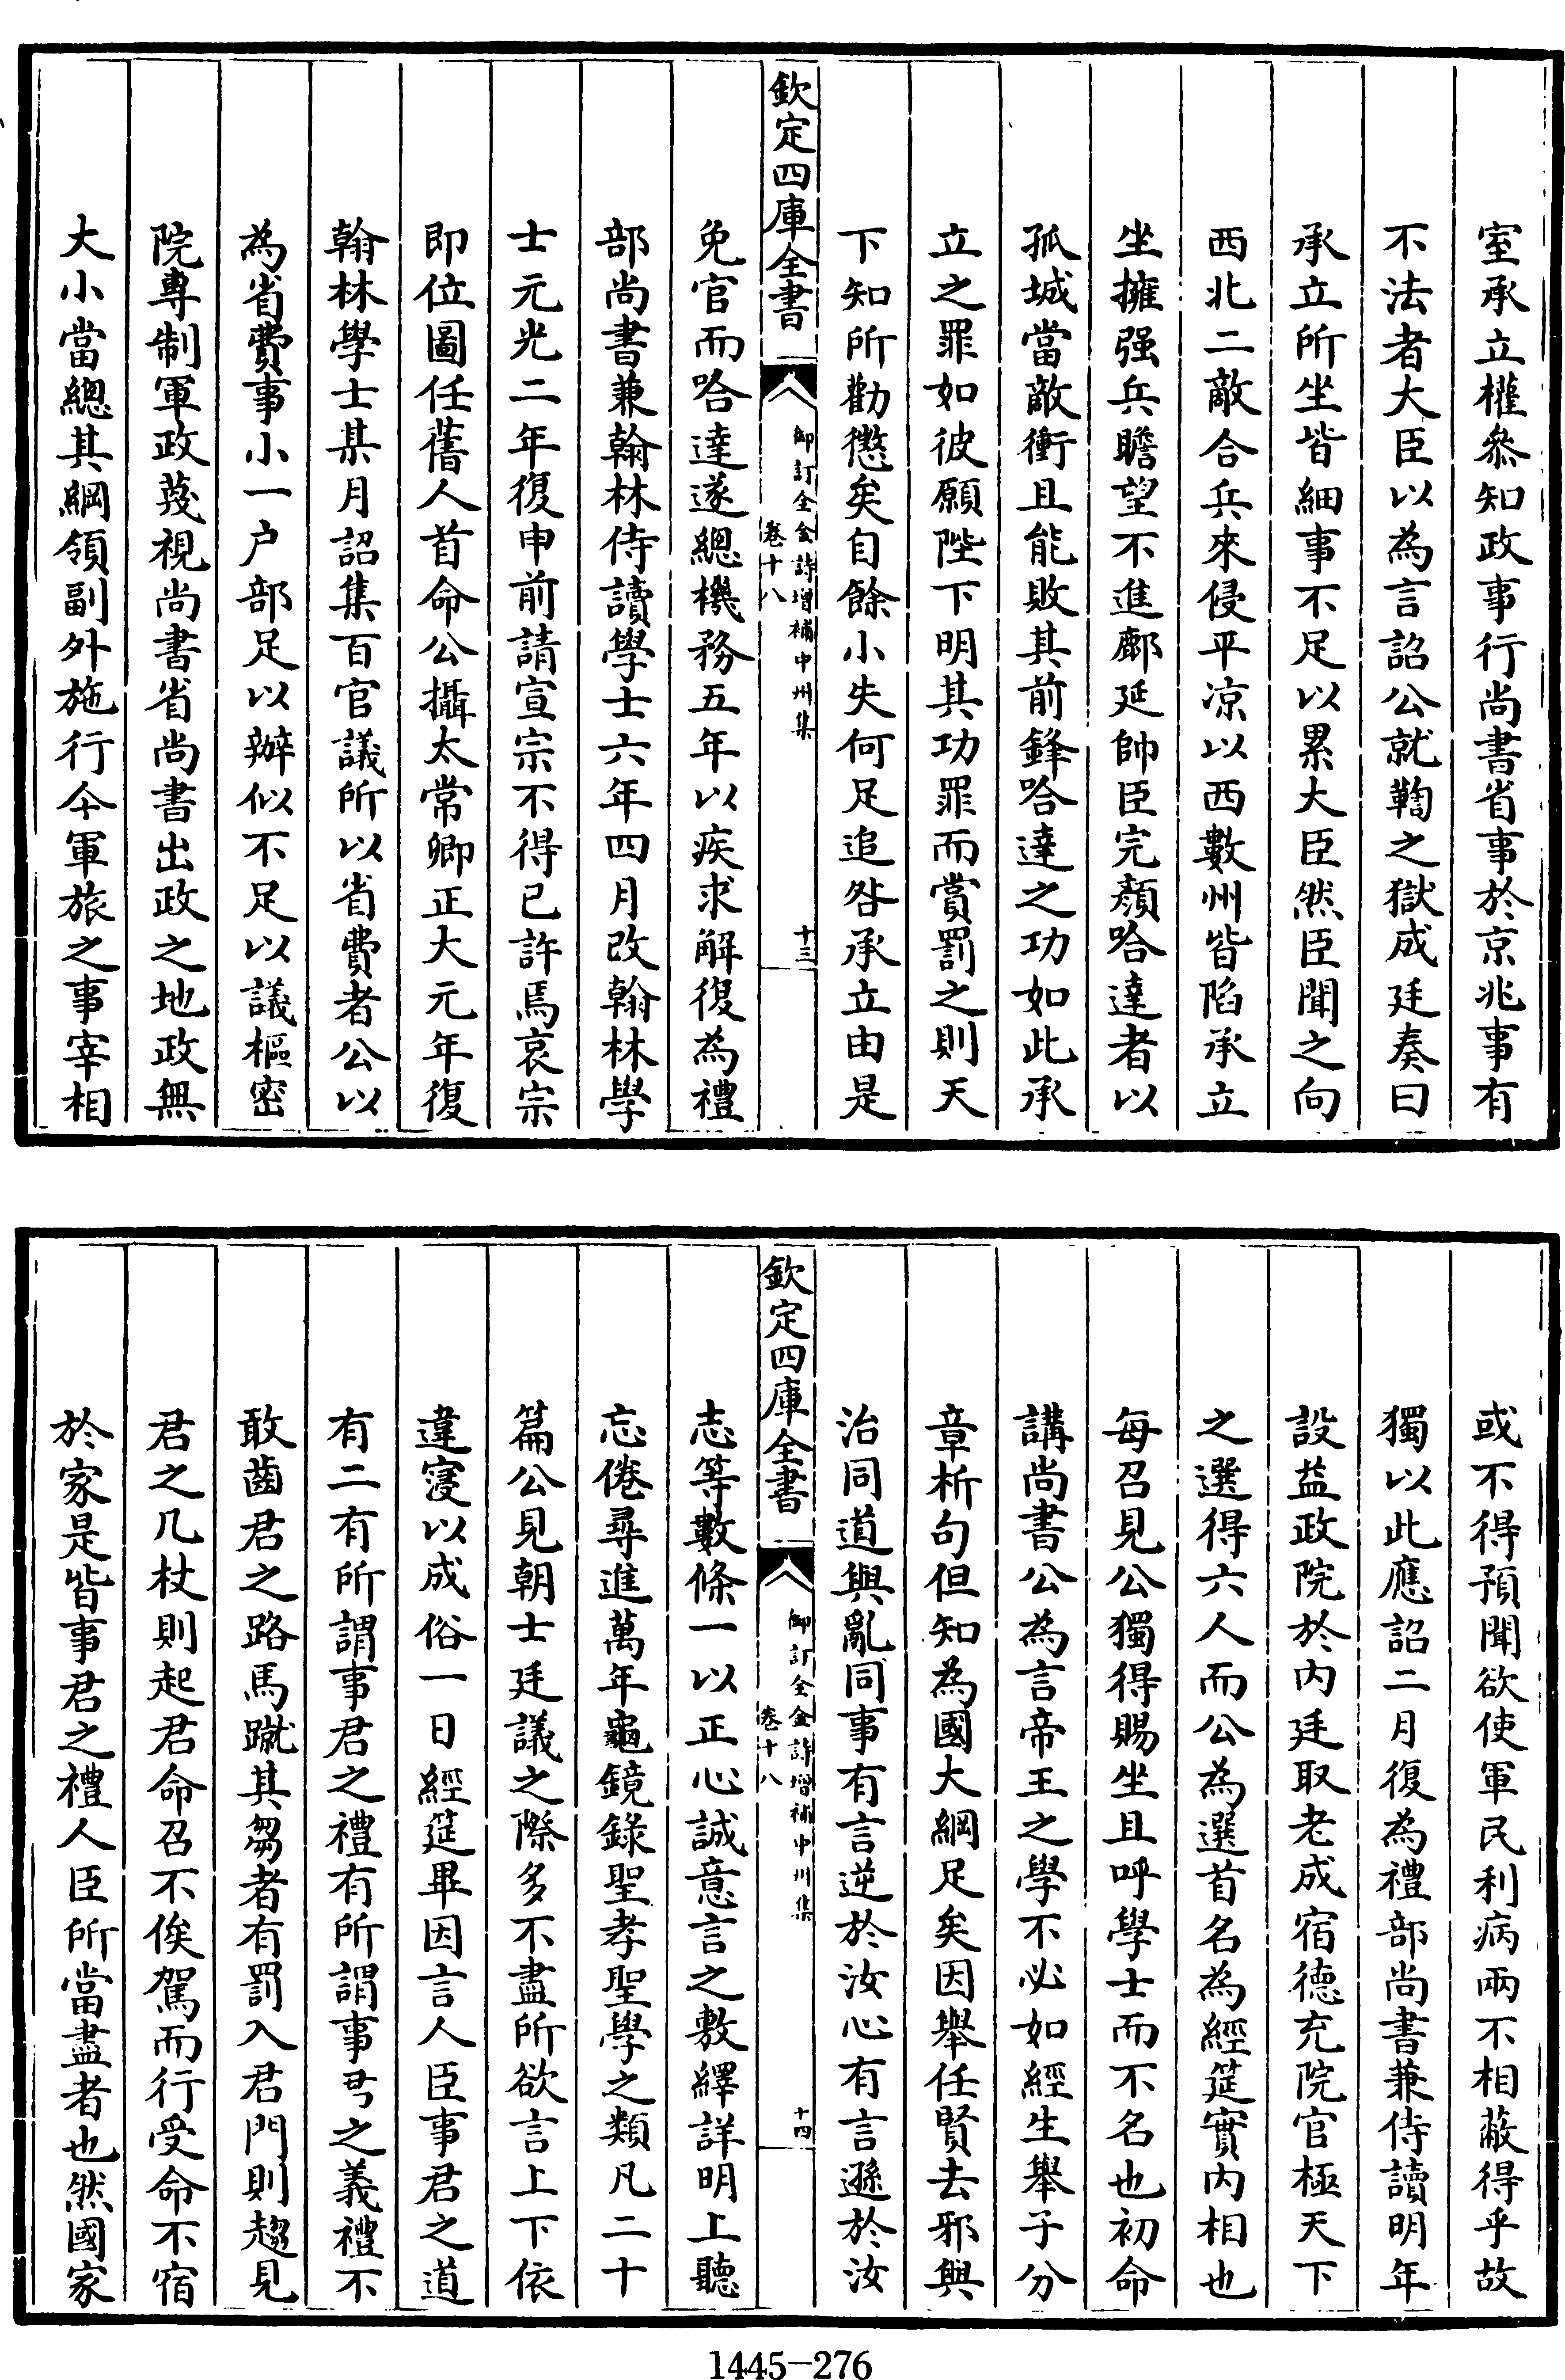 室承立權叅知政事行尚書省事於京兆事有
不法者大臣以為言詔公就鞫之獄成廷奏曰
承立所坐皆細事不足以累大臣然臣聞之向
西北二敵合兵來侵平凉以西數州皆陷承立
坐擁强兵瞻望不進鄜延帥臣完顔哈達者以
孤城當敵衝且能敗其前鋒哈達之功如此承
立之罪如彼願陛下明其功罪而賞罰之則天
下知所勸懲矣自餘小失何足追咎承立由是
欽定四庫全書
御訂全金詩增補中州集
卷十八
十三
免官而哈達遂總機務五年以疾求解復為禮
部尚書兼翰林侍讀學士六年四月改翰林學
士元光二年復申前請宣宗不得已許焉哀宗
即位圖任舊人首命公攝太常卿正大元年復
翰林學士某月詔集百官議所以省費者公以
為省費事小一户部足以辦似不足以議樞密
院專制軍政蔑視尚書省尚書出政之地政無
大小當總其綱領副外施行今軍旅之事宰相
或不得預聞欲使軍民利病兩不相蔽得乎故
獨以此應詔二月復為禮部尚書兼侍讀明年
設益政院於内廷取老成宿德充院官極天下
之選得六人而公為選首名為經筵實内相也
每召見公獨得賜坐且呼學士而不名也初命
講尚書公為言帝王之學不必如經生舉子分
章析句但知為國大綱足矣因舉任賢去邪與
治同道與亂同事有言逆於汝心有言遜於汝
欽定四庫全書
御訂全金詩增補中州集
卷十八
十四
志等數條一以正心誠意言之敷繹詳明上聽
忘倦尋進萬年龜鏡錄聖孝聖學之類凡二十
篇公見朝士廷議之際多不盡所欲言上下依
違寖以成俗一日經筵畢因言人臣事君之道
有二有所謂事君之禮有所謂事君之義禮不
敢齒君之路馬蹴其芻者有罰入君門則趨見
君之几杖則起君命召不俟駕而行受命不宿
於家是皆事君之禮人臣所當盡者也然國家
1445-276